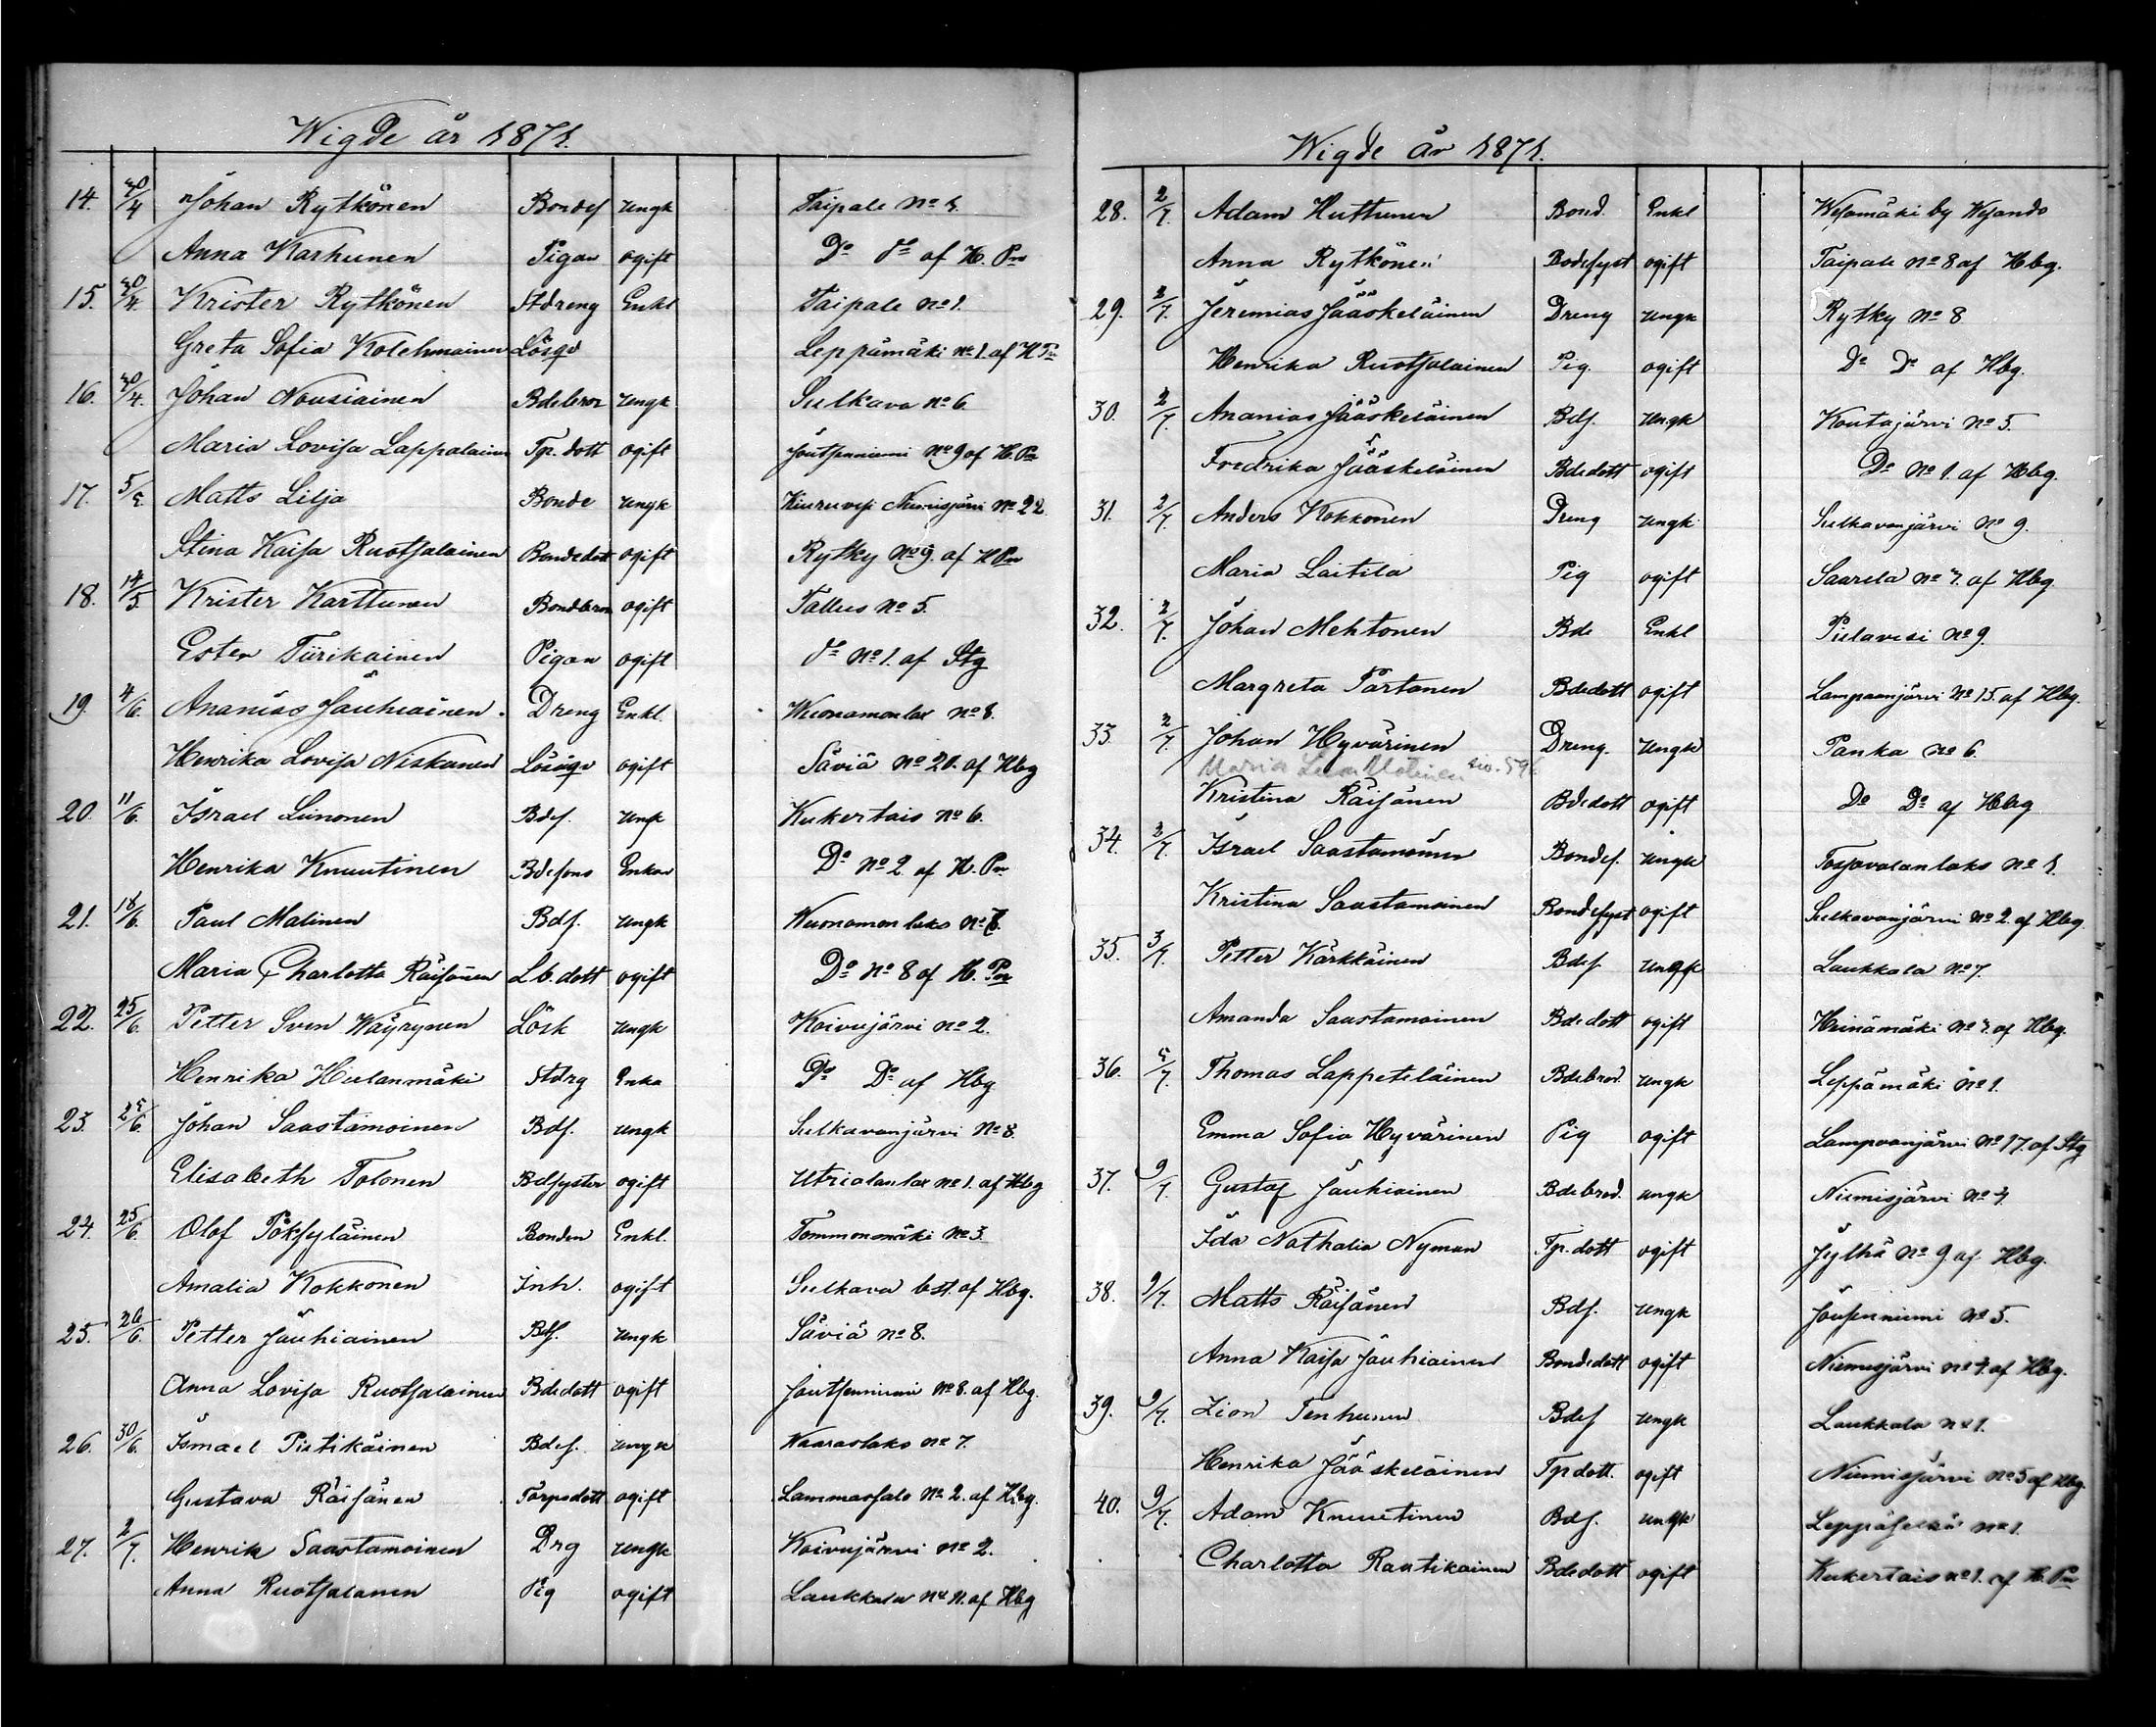 Wigde år 1871.
14. Johan Rytkönen Bondes ungk Taipale No 1.
Anna Karhunen Pigan ogift Do do af H. Pn
15. Krister Rytkönen Stdreng Enkl Taipale No 1.
Greta Sofia Kolehmainen Lösqv Leppämäki No 1. af H Pn
16. Johan Nousiainen Bdebror ungk Sulkava No 6.
Maria Lovisa Lappalainen Tp. dott ogift Joutsenniemi No 9 af H. Pn
17. Matts Lilja Bonde ungk Kiuruvesi Niemisjärvi No 22.
Stina Kaisa Ruotsalainen Bondedott ogift Rytky No 9. af H Pn
18. 14/5 Krister Karttunen Bondbron ogift Tallus No 5.
Ester Tiirikainen Pigan ogift do No 1. af Stg
19. 4/6. Ananias Jauhiainen. Dreng Enkl. Wuonamonlax No 8.
Henrika Lovisa Niskanen Lösqv ogift Säviä No 21. af Hbg
20. 11/6. Israel Leinonen Bdes. ungk Kukertais No 6.
Henrika Knuutinen Bdesons Enkan Do No 2 af H. Pn
21. 18/6. Paul Malinen Bds. ungk Wuonamonlaks No 7.
Maria Charlotta Räisänen Lb. dott ogift Do No 8 af H. Pn
22. 25/6. Petter Sven Wäyrynen Lösk ungk Koivujärvi No 2.
Henrika Hiulanmäki Stdrg Enka Do Do af Hbg
23. 25/6. Johan Saastamoinen Bds. ungk Sulkavanjärvi No 8.
Elisabeth Tolonen Bdsyster ogift Utrialanlax No 1. af Hbg
24. 25/6. Olof Pöksyläinen Bonden Enkl. Tommonmäki No 3.
Amalia Kokkonen Inh. ogift Sulkava bst. af Hbg.
25. 26/6. Petter Jauhiainen Bds. ungk Säviä No 8.
Anna Lovisa Ruotsalainen Bdedott ogift Joutsenniemi No 8. af Hbg.
26. 30/6. Ismael Pietikäinen Bdes. ungk Waaraslaks No 7.
Gustava Räisänen Torpsdott ogift Lammassalo No 2. af Hbg.
27. 2/7. Henrik Saastamoinen Drg ungk Koivujärvi No 2.
Anna Ruotsalanen Pig ogift Laukkala No 11. af Hbg
Wigde år 1871.
28. 2/7. Adam Huttunen Bond. Enkl Wesamäki by Wesando
Anna Rytkönen Bodesyst ogift Taipale No 8 af Hbg.
29. 2/7. Jeremias Jääskeläinen Dreng ungk Rytky No 8
Henrika Ruotsalainen Pig. ogift Do Do af Hbg.
30. 2/7. Ananias Jääskeläinen Bds. ungk Koutajärvi No 5.
Fredrika Jääskeläinen Bdedott ogift Do No 1. af Hbg.
31. 2/7. Anders Kokkonen Dreng ungk Sulkavanjärvi No 9.
Maria Laitila Pig ogift Saarela No 7. af Hbg.
32. 2/7. Johan Mehtonen Bde Enkl Pielavesi No 9.
Margreta Partanen Bdedott ogift Lampaanjärvi No 15. af Hbg.
33. 2/7. Johan Hyvärinen Dreng. ungk Panka No 6.
Maria
Kristina Räisänen Bdedott ogift Do Do af Hbg
34. 2/7. Israel Saastamoinen Bondes. ungk Tossavalanlaks No 1.
Kristina Saastamoinen Bondesyst ogift Sulkavanjärvi No 2. af Hbg.
35. 3/7. Petter Kärkkäinen Bdes. ungk Laukkala No 7.
Amanda Saastamoinen Bdedott ogift Heinämäki No af Hbg.
36. 5/7. Thomas Lappeteläinen Bdebrod. ungk Leppämäki No 1.
Emma Sofia Hyvärinen Pig ogift Lampaanjärvi No 17. af Stg
37. 9/7. Gustaf Jauhiainen Bdebrod. ungk Niemisjärvi No 4
Ida Nathalia Nyman Tp. dott ogift Jylhä No 9 af Hbg.
38. 9/7. Matts Räisänen Bds. ungk Joutsenniemi No 5.
Anna Kaisa Jauhiainen Bondedott ogift Niemisjärvi No 4. af Hbg.
39. 9/7. Zion Tenhunen Bdes ungk Laukkala No 1.
Henrika Jääskeläinen Tpdott. ogift Niemisjärvi No 5 af Hbg.
40. 9/7. Adam Knuutinen Bds. ungk Leppäselkä No 1.
Charlotta Rautikainen Bdedott ogift Kukertais No 1. af H. Pn